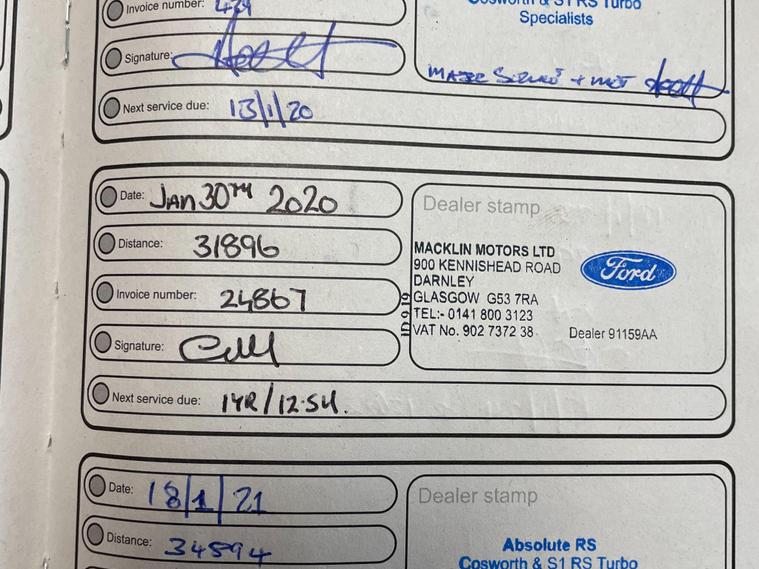 Invoice number: 439
Cosworth & S1 RS Turbo
Specialists
Signature:
Next service due: 13/1/20
Date: JAN 30TH 2020
Distance: 31896
Invoice number: 24867
Signature:
Next service due: 1YR/12.5K.
Dealer stamp
MACKLIN MOTORS LTD
900 KENNISHEAD ROAD
DARNLEY
GLASGOW G53 7RA
TEL:- 0141 800 3123
VAT No. 902 7372 38
Dealer 91159AA
Ford
Date: 18/1/21
Distance: 34594
Dealer stamp
Absolute RS
Cosworth & S1 RS Turbo